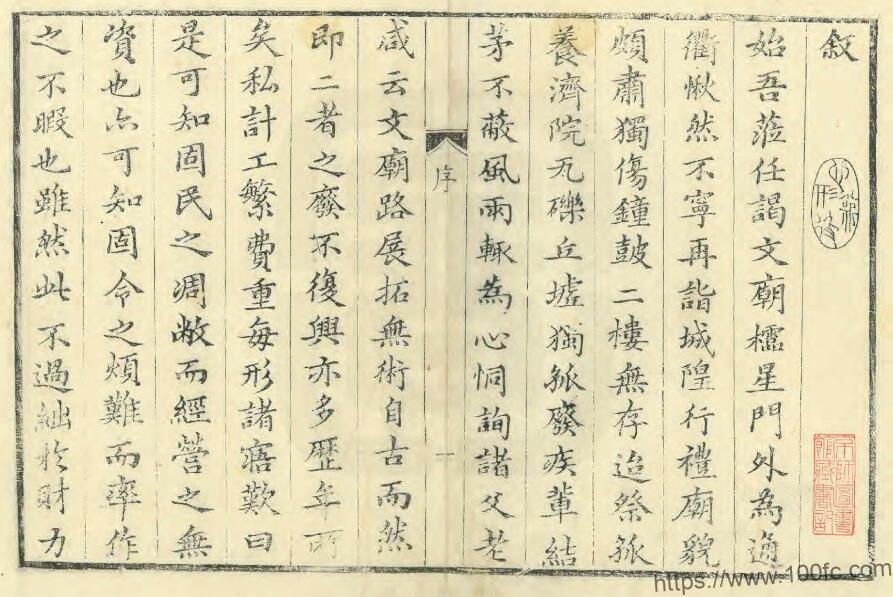 叙
始吾蒞任謁文廟櫺星門外為通
衢愀然不寧再詣城隍行禮廟貌
頗肅獨傷鐘鼓二樓無存迨祭孤
養濟院瓦礫丘墟獨孤廢疾輩結
茅不蔽風雨輒為心恫詢諸父老
序
一
咸云文廟路展拓無術自古而然
即二者之廢不復興亦多歷年所
矣私計工繁費重每形諸寤歎曰
是可知固民之凋敝而經營之無
資也亦可知固令之煩難而率作
之不暇也雖然此不過絀於財力
京師圖書
館藏書記
https://www.100fc.com